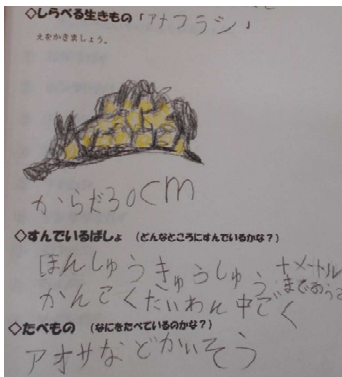 ◇しらべる生きもの「アナフラシ」
えをかきましょう。
からだ30cm
◇すんでいるばしょ (どんなところにすんでいるかな?)
ほんしゅうきゅうしゅう十メートル
かんこくたいわん中ごく
◇たべもの (なにをたべているのかな?)
アオサなどかいそう